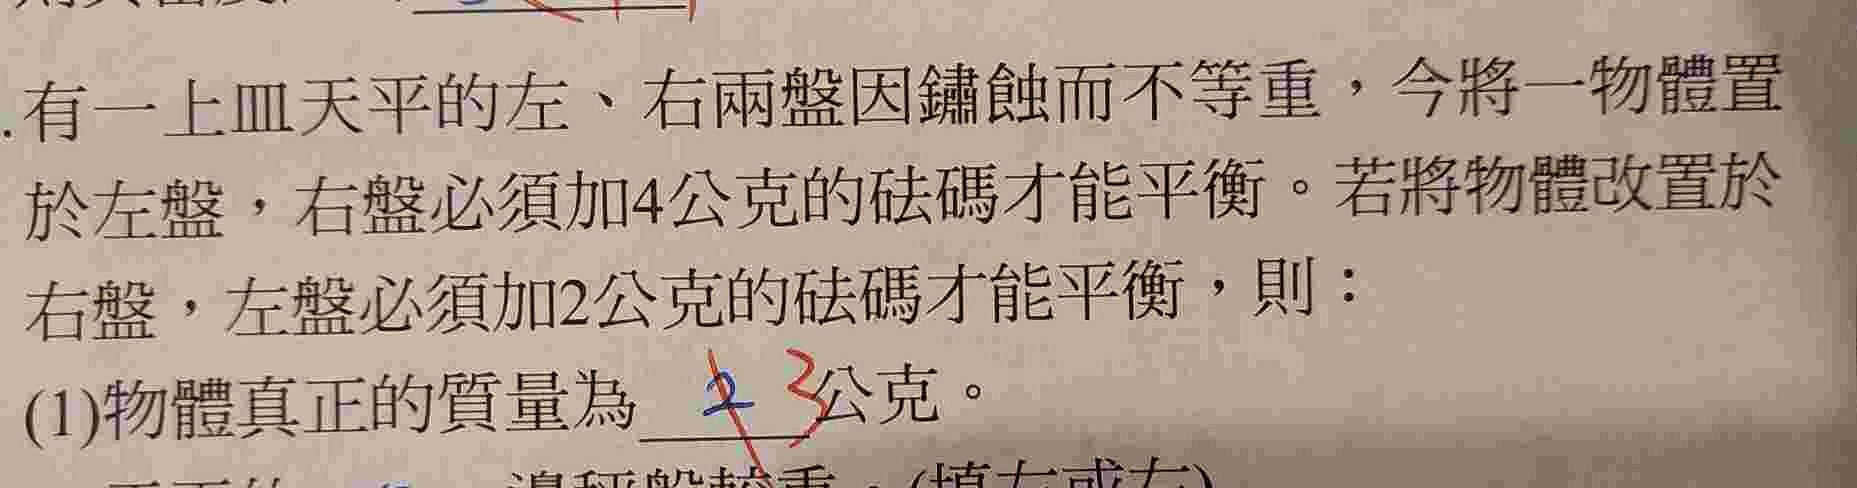 .有一上皿天平的左、右兩盤因鏽蝕而不等重，今將一物體置
於左盤，右盤必須加4公克的砝碼才能平衡。若將物體改置於
右盤，左盤必須加2公克的砝碼才能平衡，則：
(1)物體真正的質量為 2 3 公克。
邊秤盤較重。(填左或右)